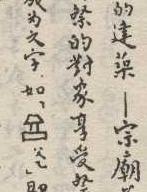 的建築—宗廟
祭的對象享受祭
成為文字.如,